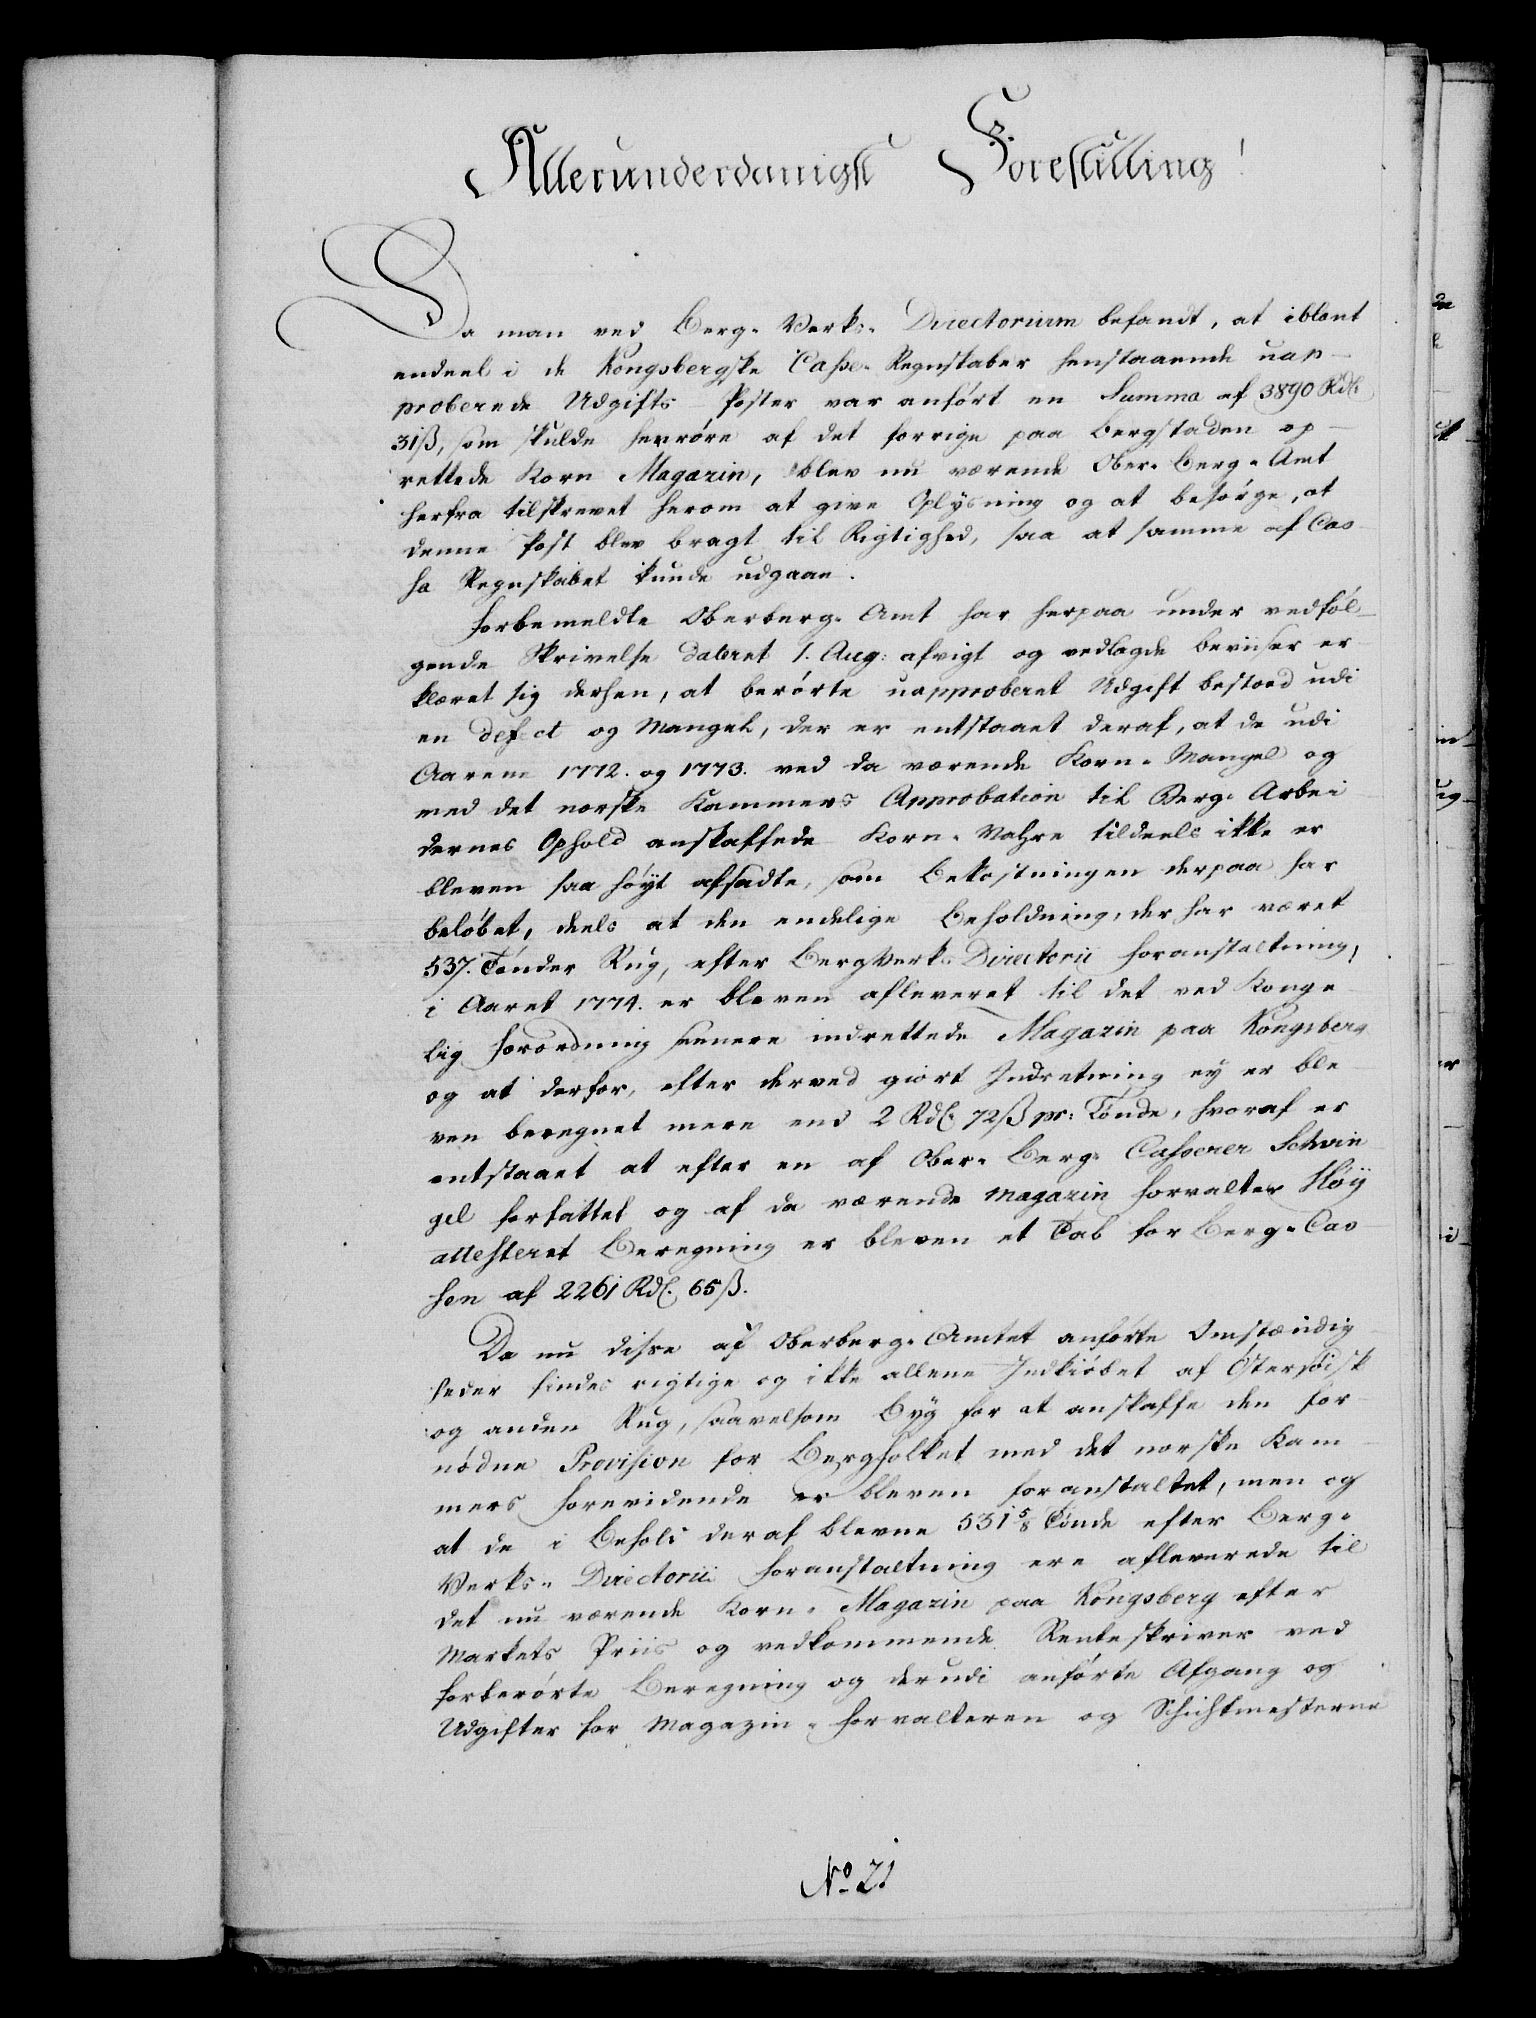 Allerunderdanigst Forestilling!
Da man ved Berg-Verks-Directorium befandt, at iblant
endeel i de Kongsbergske Casse-Regnskaber henstaaende uap-
proberede Udgifts Poster var anført en Summa af 3890 Rdl.
31ß, som skulde herrøre af det forrige paa Bergstaden op-
rettede Korn Magazin, blev nu værende Ober-Berg-Amt
herfra tilskrevet herom at give Oplysning og at besørge, at
denne Post blev bragt til Rigtighed, saa at samme af Cas-
sa Regnskabet kunde udgaae.
Forbemeldte Oberberg-Amt har herpaa under vedføl-
gende Skrivelse dateret 1. Aug: afvigt og vedlagde beviiser er-
klæret sig derhen, at berørte uapproberet Udgift bestoed udi
en defect og Mangel, der er entstaaet deraf, at de udi
Aarene 1772. og 1773. ved da værende Korn-Mangel og
med det norske Kammers Approbation til Berg-Arbei-
dernes Ophold anskaffede Korn-Vahre tildeels ikke er
bleven saa høyt afsadte, som Bekostningen derpaa har
beløbet, deels at den endelige Beholdning, der har været
537. Tønder Rug, efter BergVerks-Directorii Foranstaltning,
i Aaret 1774. er bleven afleveret til det ved Konge-
lig Forordning senere indrettede Magazin paa Kongsberg
og at derfor, efter derved giort Indretning ey er ble-
ven beregnet mere end 2 Rdl. 72ß pr: Tønde, hvoraf er
entstaaet at efter en af Ober-Berg-Casserer Schwin-
gel forfattet og af da værende Magazin Forvalter Höÿ
attesteret Beregning er bleven et Tab for Berg-Cas-
sen af 2261 Rdl. 65ß.
Da nu disse af Oberberg-Amtet anførte Omstændig-
heder findes rigtige og ikke allene Indkiøbet af Østersøisk
og anden Rug, saavelsom Byg for at anskaffe den for-
nødne Provision for Bergfolket med det norske Kam-
mers Forevidende er bleven foranstaltet, men og
at de i Behold deraf blevne 531 5/8 Tønde efter Berg-
Verks-Directorii Foranstaltning ere afleverede til
det nu værende Korn-Magazin paa Kongsberg efter
Markets Priis og vedkommende Renteskriver ved
forberørte Beregning og derudi anførte Afgang og
Udgifter for Magazin-Forvalteren og Schichtmesterne
No 21